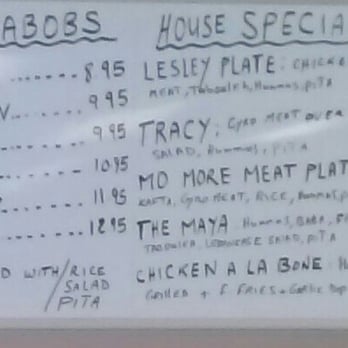 ABOBS
8.95
9.95
9.95
10.95
11.95
12.95
D WITH/RICE
SALAD
PITA
HOUSE SPECIA
LESLEY PLATE: CHICKE
MEAT, Tabouleh, Hummus, PITA
TRACY: Gyro MEAT OVER
SALAD, Hummus, PITA
MO MORE MEAT PLAT
KAFTA, Gyro MEAT, RICE, Hummus, P
THE MAYA Hummus, BABA, F
SALAD, PITA
CHICKEN A LA BONE
Grilled + F FRIES + Garlic Dip